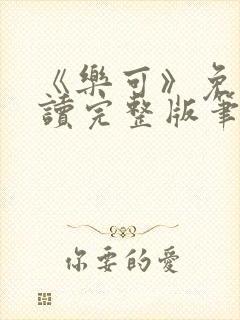 《樂可》免
讀完整版筆
你要的愛